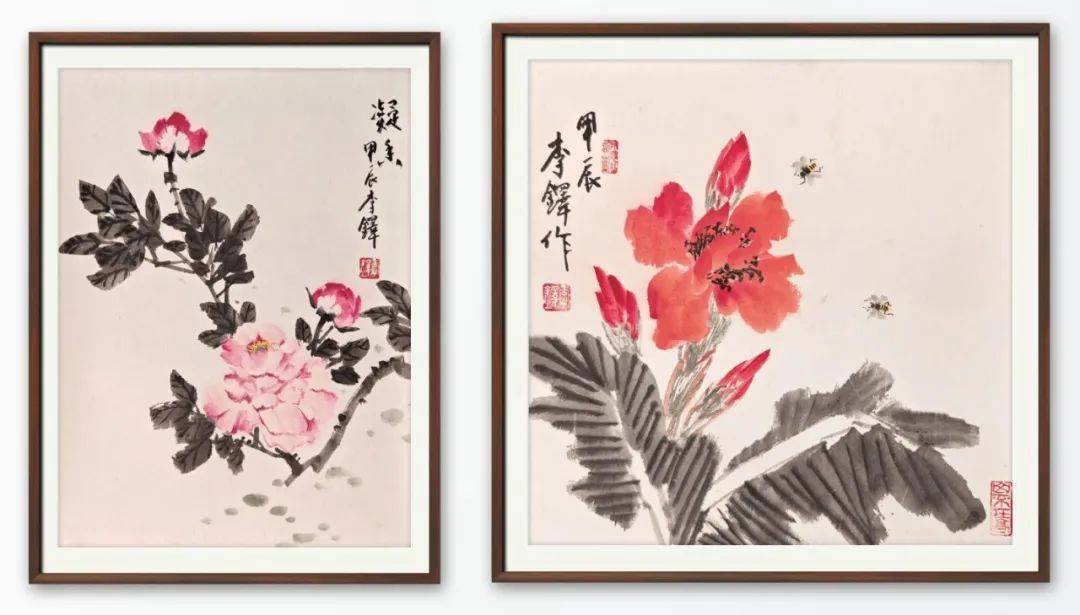 凝香
甲辰李鐸
甲辰
李鐸作